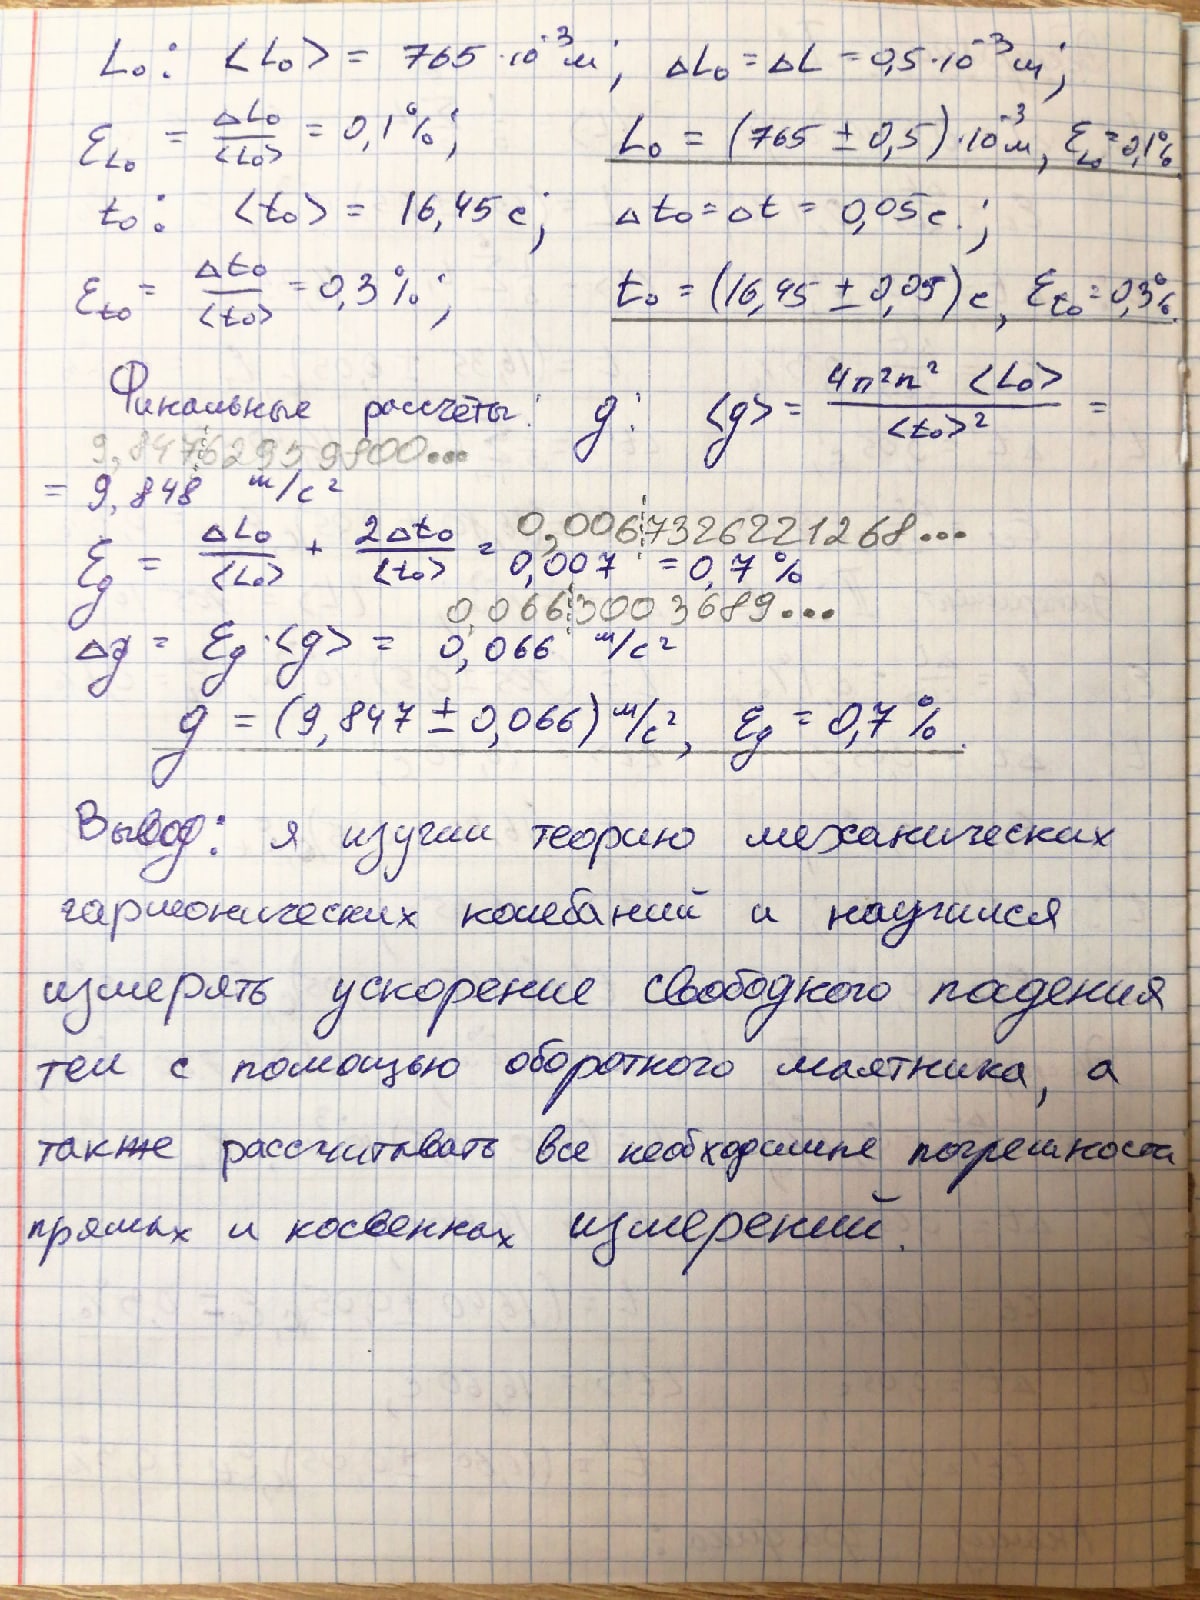 L₀: ⟨L₀⟩ = 765·10⁻³ м; ΔL₀ = ΔL = 0,5·10⁻³ м;
ε_L₀ = ΔL₀/⟨L₀⟩ = 0,1%; L₀ = (765 ± 0,5)·10⁻³ м, ε_L₀ = 0,1%
t₀: ⟨t₀⟩ = 16,45 с; Δt₀ = Δt = 0,05 с.;
ε_t₀ = Δt₀/⟨t₀⟩ = 0,3%; t₀ = (16,45 ± 0,05) с, ε_t₀ = 0,3%.
Финальные рассчёты: g: ⟨g⟩ = 4π²n² ⟨L₀⟩/⟨t₀⟩² =
9,84762959800...
= 9,848 м/с²
0,0067326221268...
ε_g = ΔL₀/⟨L₀⟩ + 2Δt₀/⟨t₀⟩ = 0,007 = 0,7%
0,0663003689...
Δg = ε_g·⟨g⟩ = 0,066 м/с²
g = (9,847 ± 0,066) м/с², ε_g = 0,7%.
Вывод: я изучил теорию механических
гармонических колебаний и научился
измерять ускорение свободного падения
тел с помощью оборотного маятника, а
также рассчитывать все необходимые погрешности
прямых и косвенных измерений.